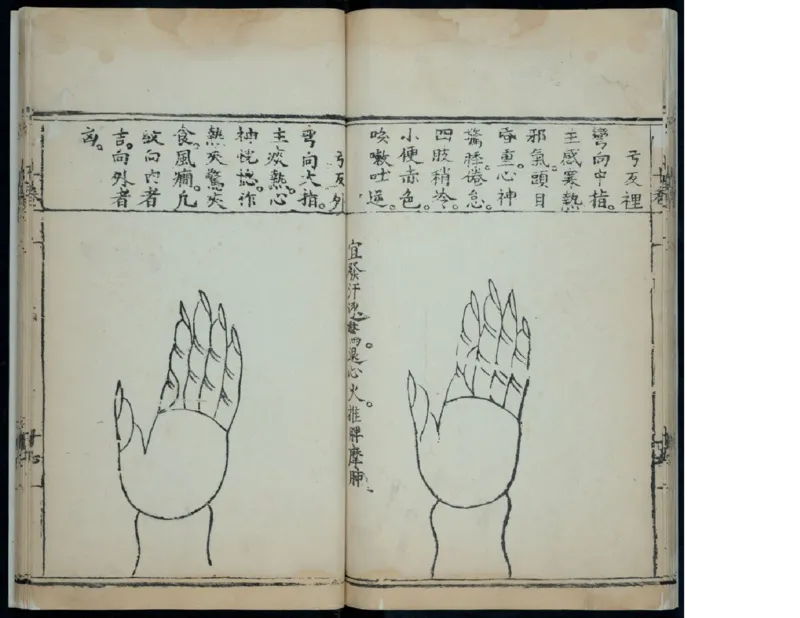 弓反裡
彎向中指。
主感寒熱
邪氣。頭目
昏重。心神
驚悸。倦怠。
四肢稍冷。
小便赤色。
咳嗽吐逆。
宜發汗
退心火。推脾摩肺
弓反外
弯向大指。
主痰熱。心
神恍惚。作
熱夾驚夾
食。風癇。凡
紋向內者
吉。向外者
凶。